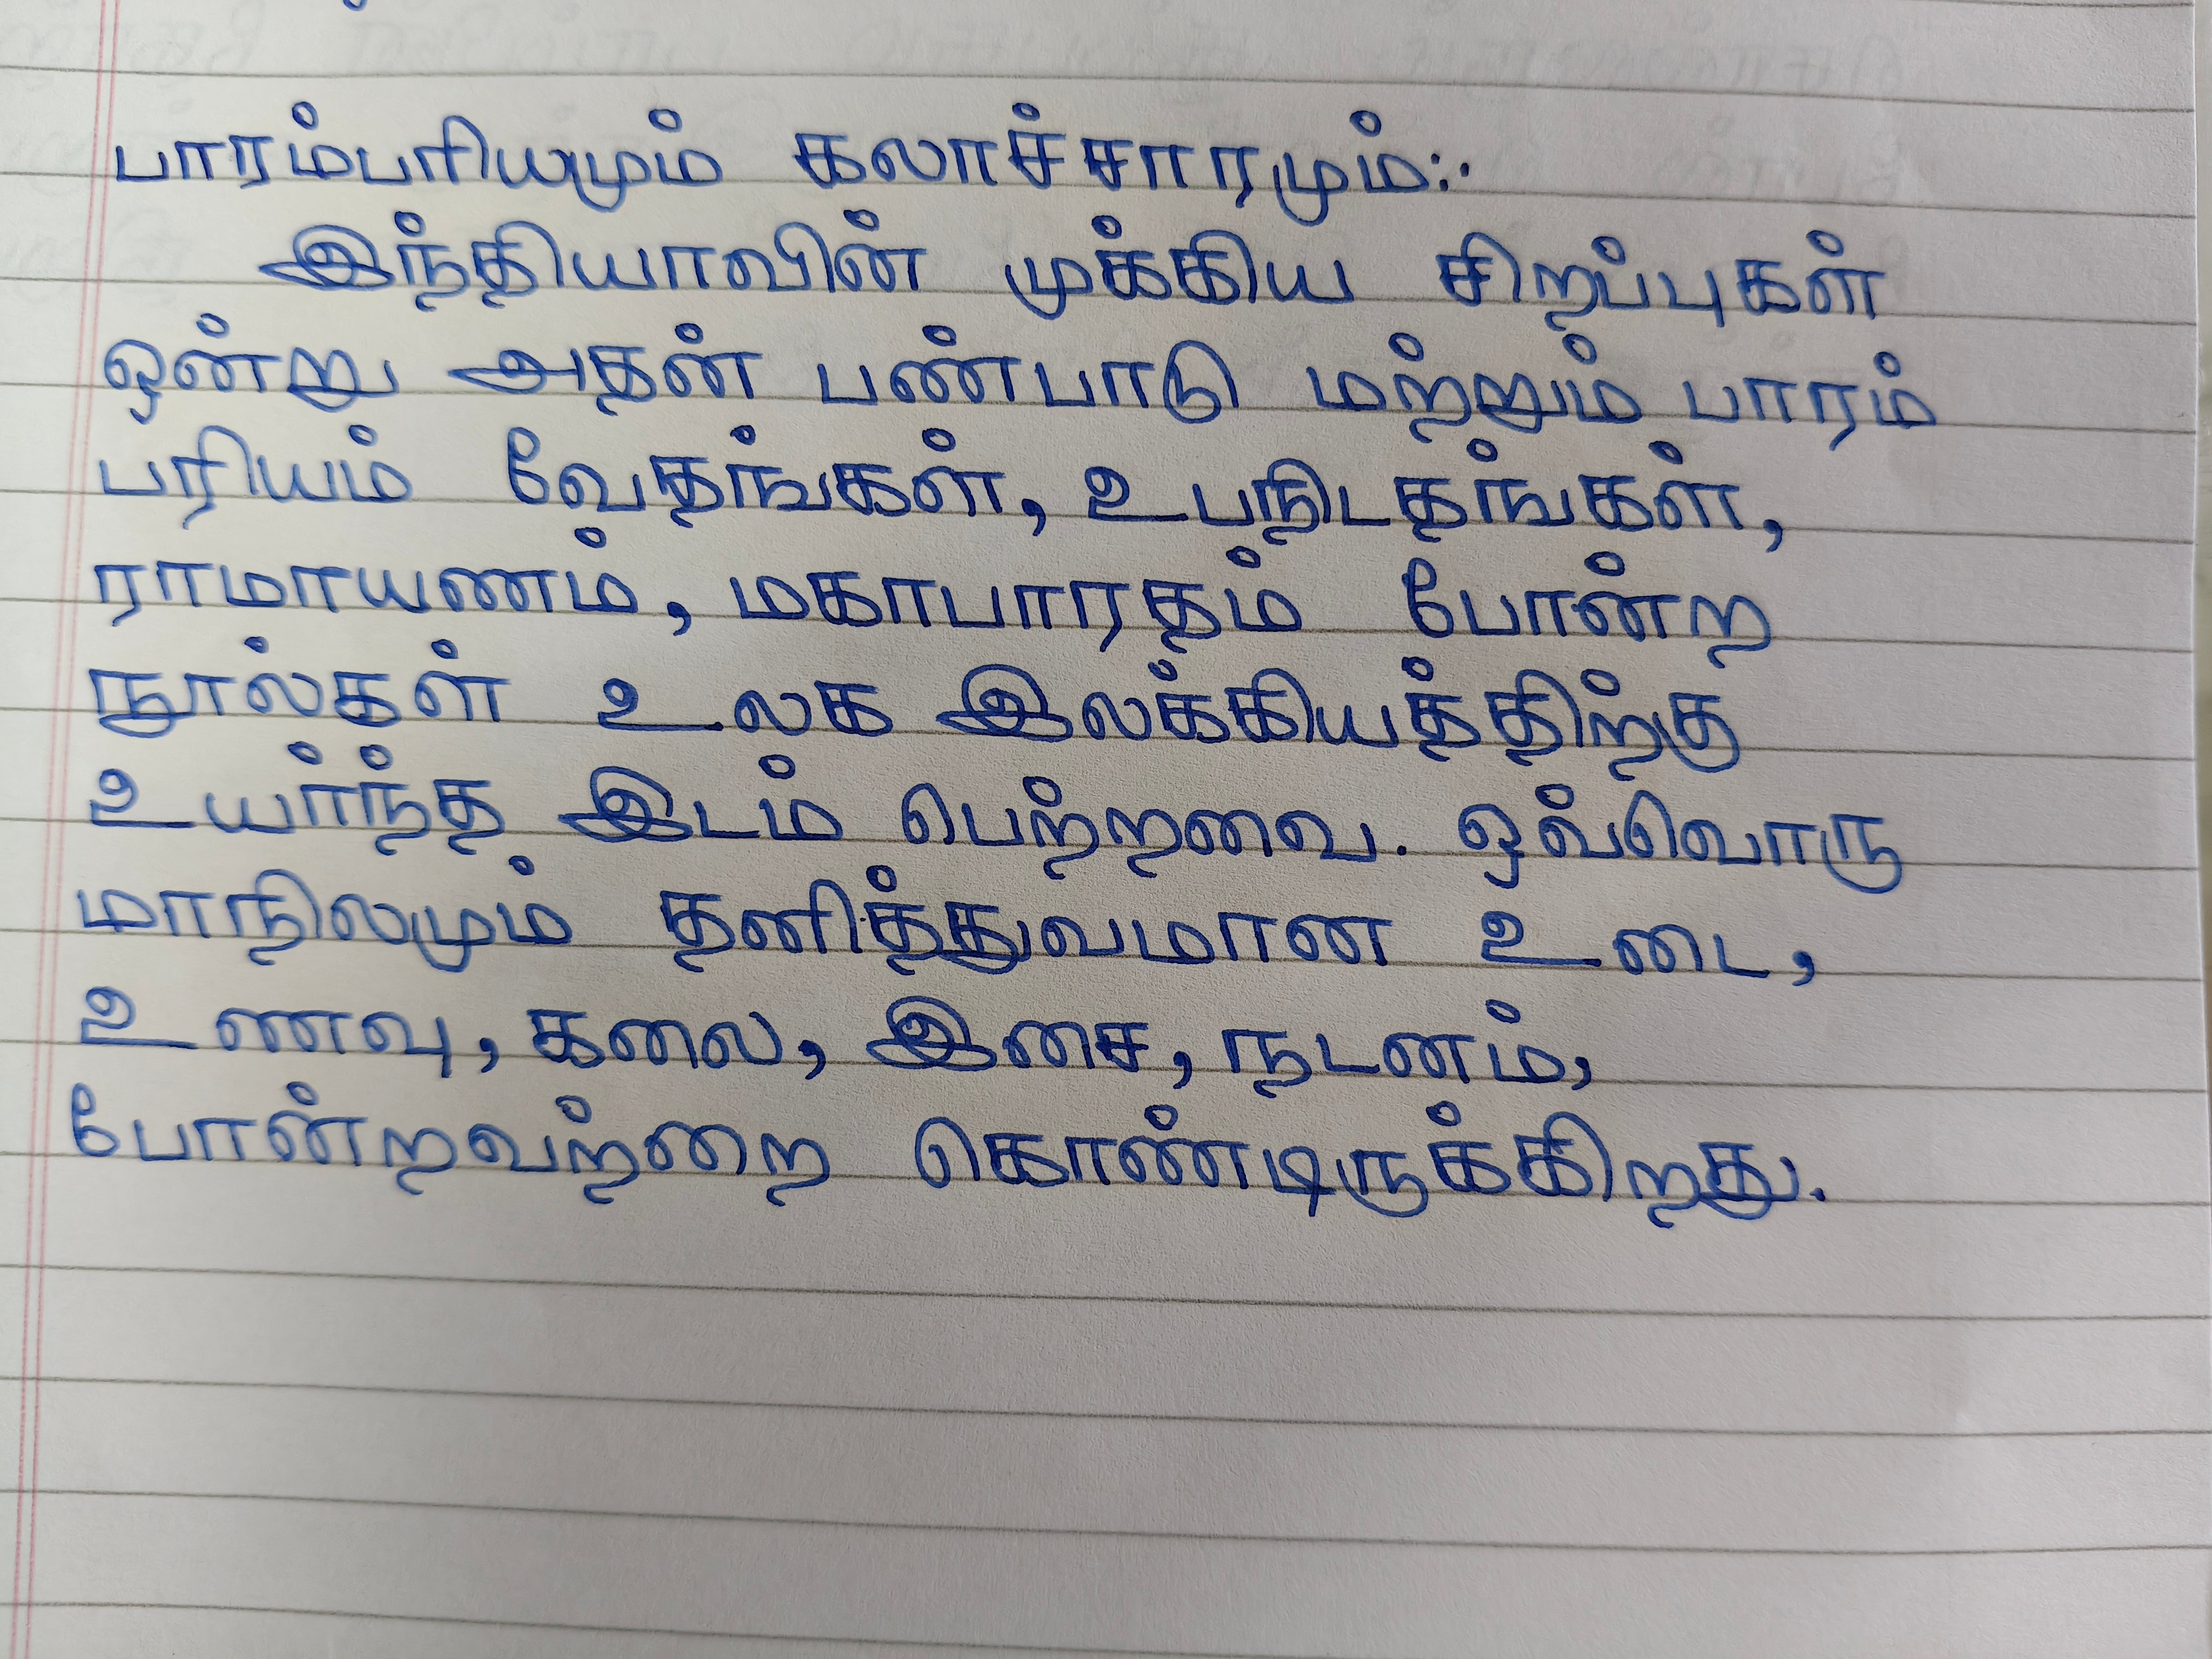 பாரம்பரியமும் கலாச்சாரமும்:-
இந்தியாவின் முக்கிய சிறப்புகள்
ஒன்று அதன் பண்பாடு மற்றும் பாரம்
பரியம் வேதங்கள், உபநிடதங்கள்,
ராமாயணம், மகாபாரதம் போன்ற
நூல்கள் உலக இலக்கியத்திற்கு
உயர்ந்த இடம் பெற்றவை. ஒவ்வொரு
மாநிலமும் தனித்துவமான உடை,
உணவு, கலை, இசை, நடனம்,
போன்றவற்றை கொண்டிருக்கிறது.